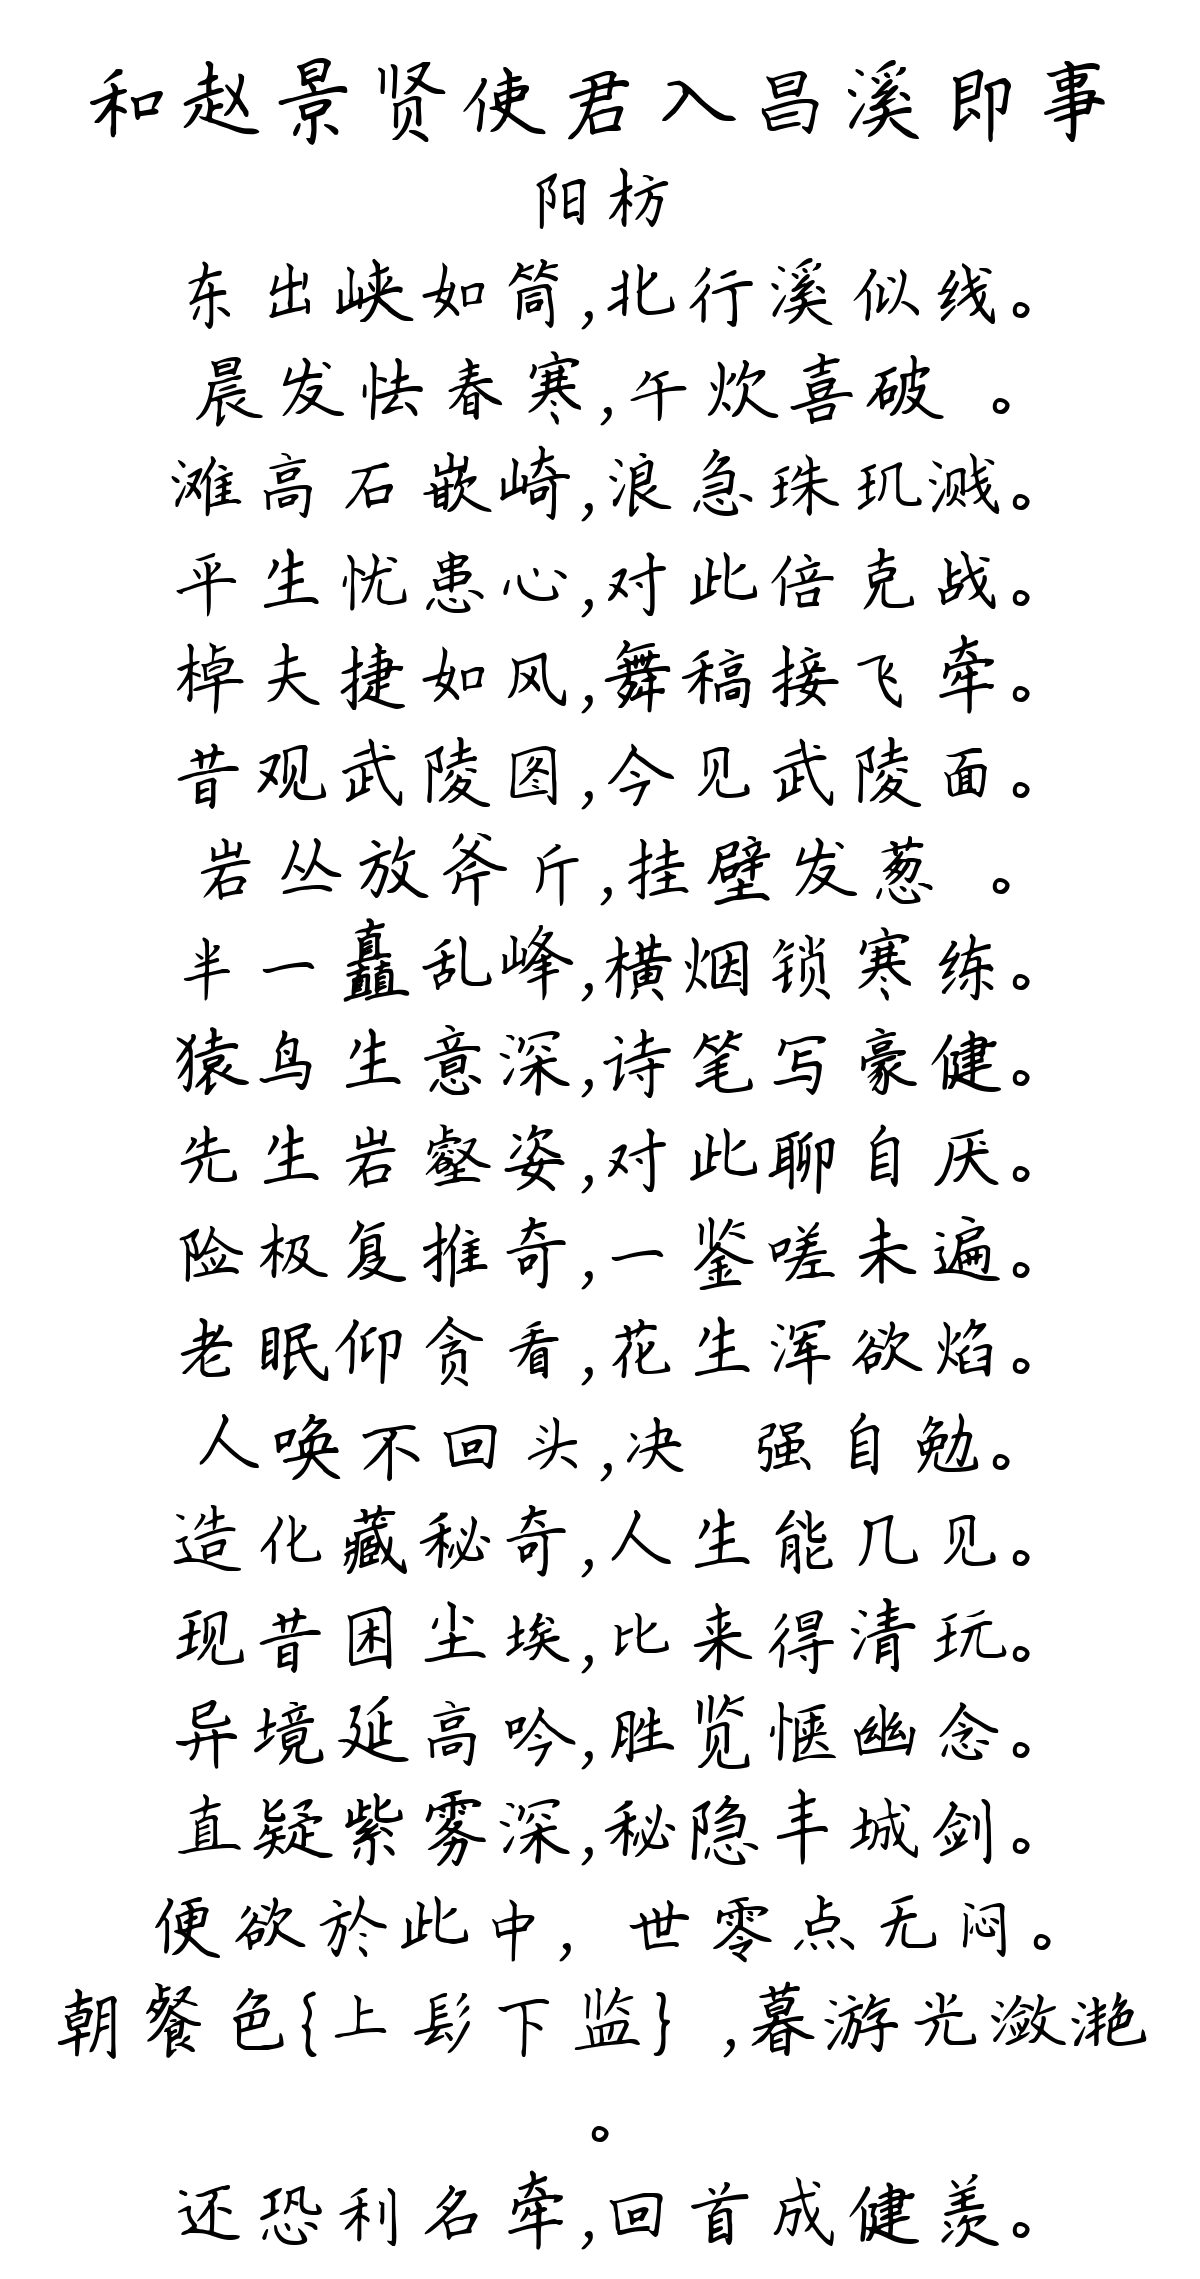 和赵景贤使君入昌溪即事
阳枋
东出峡如筒,北行溪似线。
晨发怯春寒,午炊喜破 。
滩高石嵌崎,浪急珠玑溅。
平生忧患心,对此倍克战。
棹夫捷如风,舞稿接飞牵。
昔观武陵图,今见武陵面。
岩丛放斧斤,挂壁发葱 。
半一矗乱峰,横烟锁寒练。
猿鸟生意深,诗笔写豪健。
先生岩壑姿,对此聊自厌。
险极复推奇,一鉴嗟未遍。
老眠仰贪看,花生浑欲焰。
人唤不回头,决 强自勉。
造化藏秘奇,人生能几见。
现昔困尘埃,比来得清玩。
异境延高吟,胜览惬幽念。
直凝紫雾深,秘隐丰城剑。
便欲於此中, 世零点无闷。
朝餐色{上髟下监} ,暮游光潋滟
。
还恐利名牵,回首成健羡。